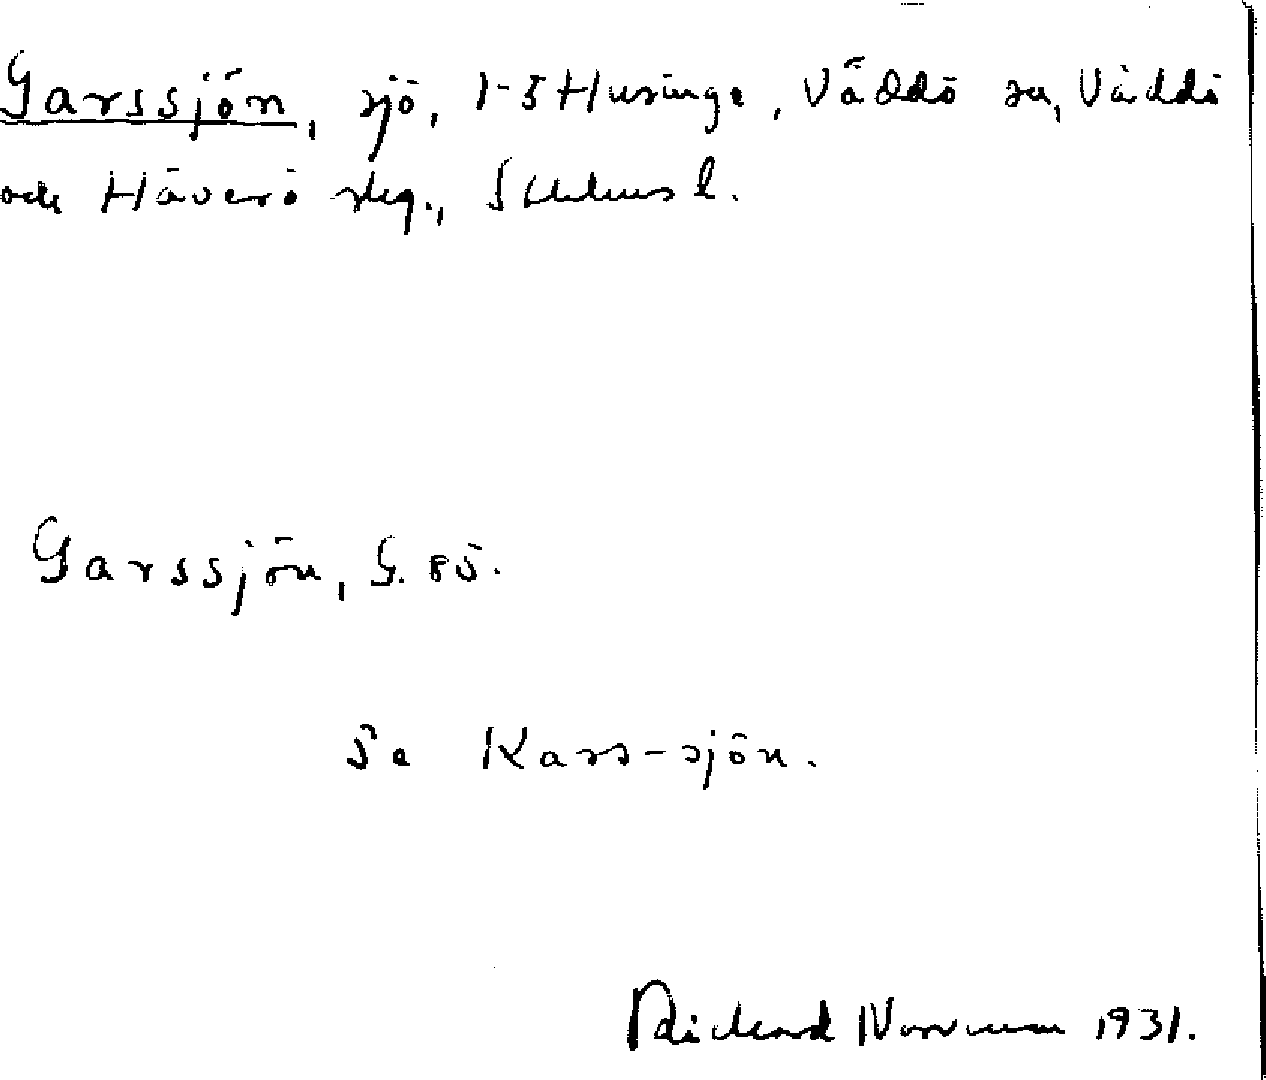 Garssjön, sjö, 1-5 Husinge, Väddö sn, Väddö
och Häverö skg., Sthlms l.
Garssjön, G. 85.
Se Kars-sjön.
Rickard Norrman 1931.